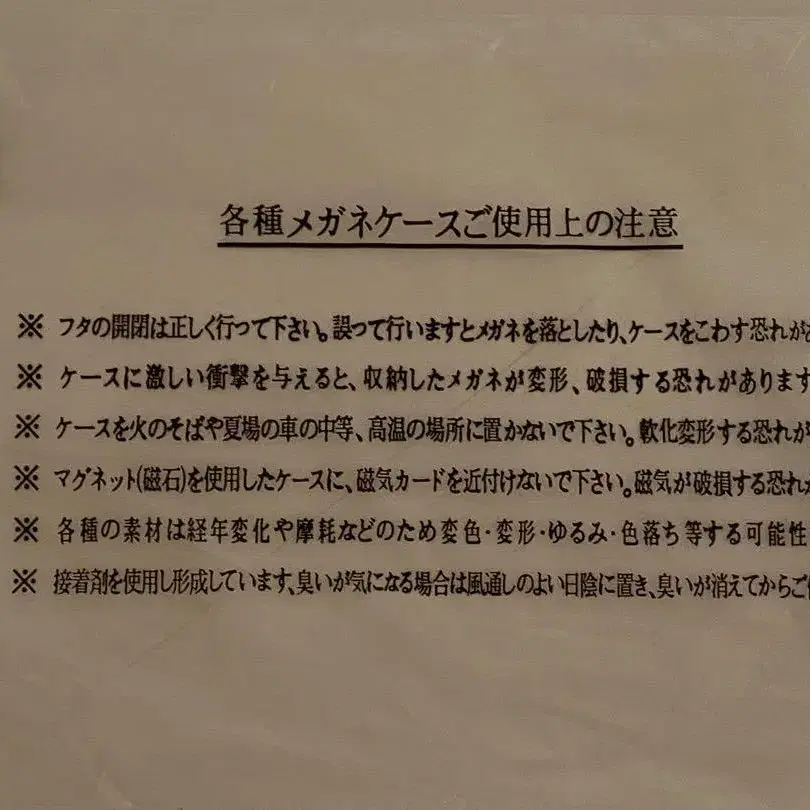 各種メガネケースご使用上の注意
※ フタの開閉は正しく行って下さい。誤って行いますとメガネを落としたり、ケースをこわす恐れが
※ ケースに激しい衝撃を与えると、収納したメガネが変形、破損する恐れがあります
※ ケースを火のそばや夏場の車の中等、高温の場所に置かないで下さい。軟化変形する恐れが
※ マグネット(磁石)を使用したケースに、磁気カードを近付けないで下さい。磁気が破損する恐れ
※ 各種の素材は経年変化や摩耗などのため変色・変形・ゆるみ・色落ち等する可能性
※ 接着剤を使用し形成しています、臭いが気になる場合は風通しのよい日陰に置き、臭いが消えてからご